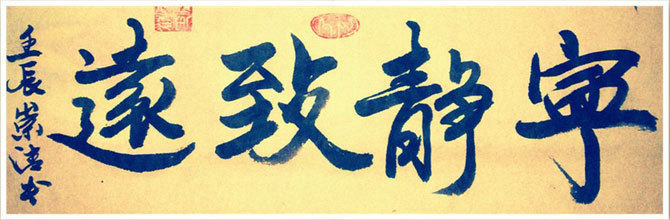 寧靜致遠
壬辰崇清书